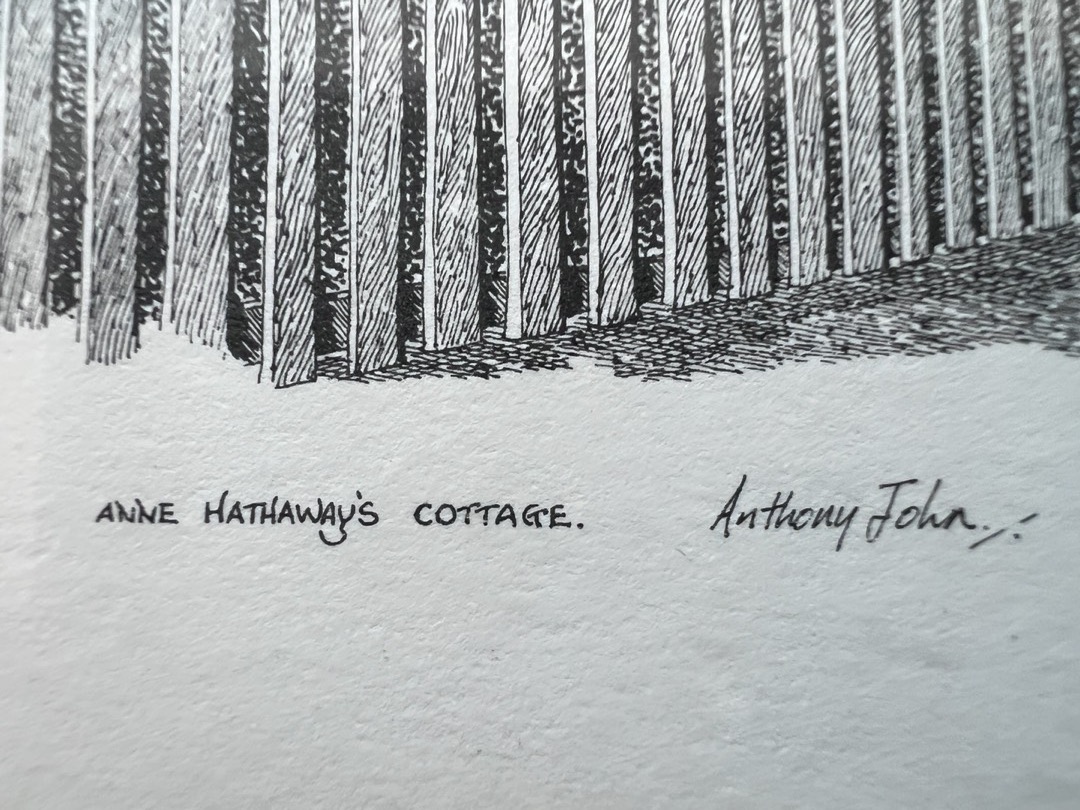 ANNE HATHAWAY'S COTTAGE. Anthony John.